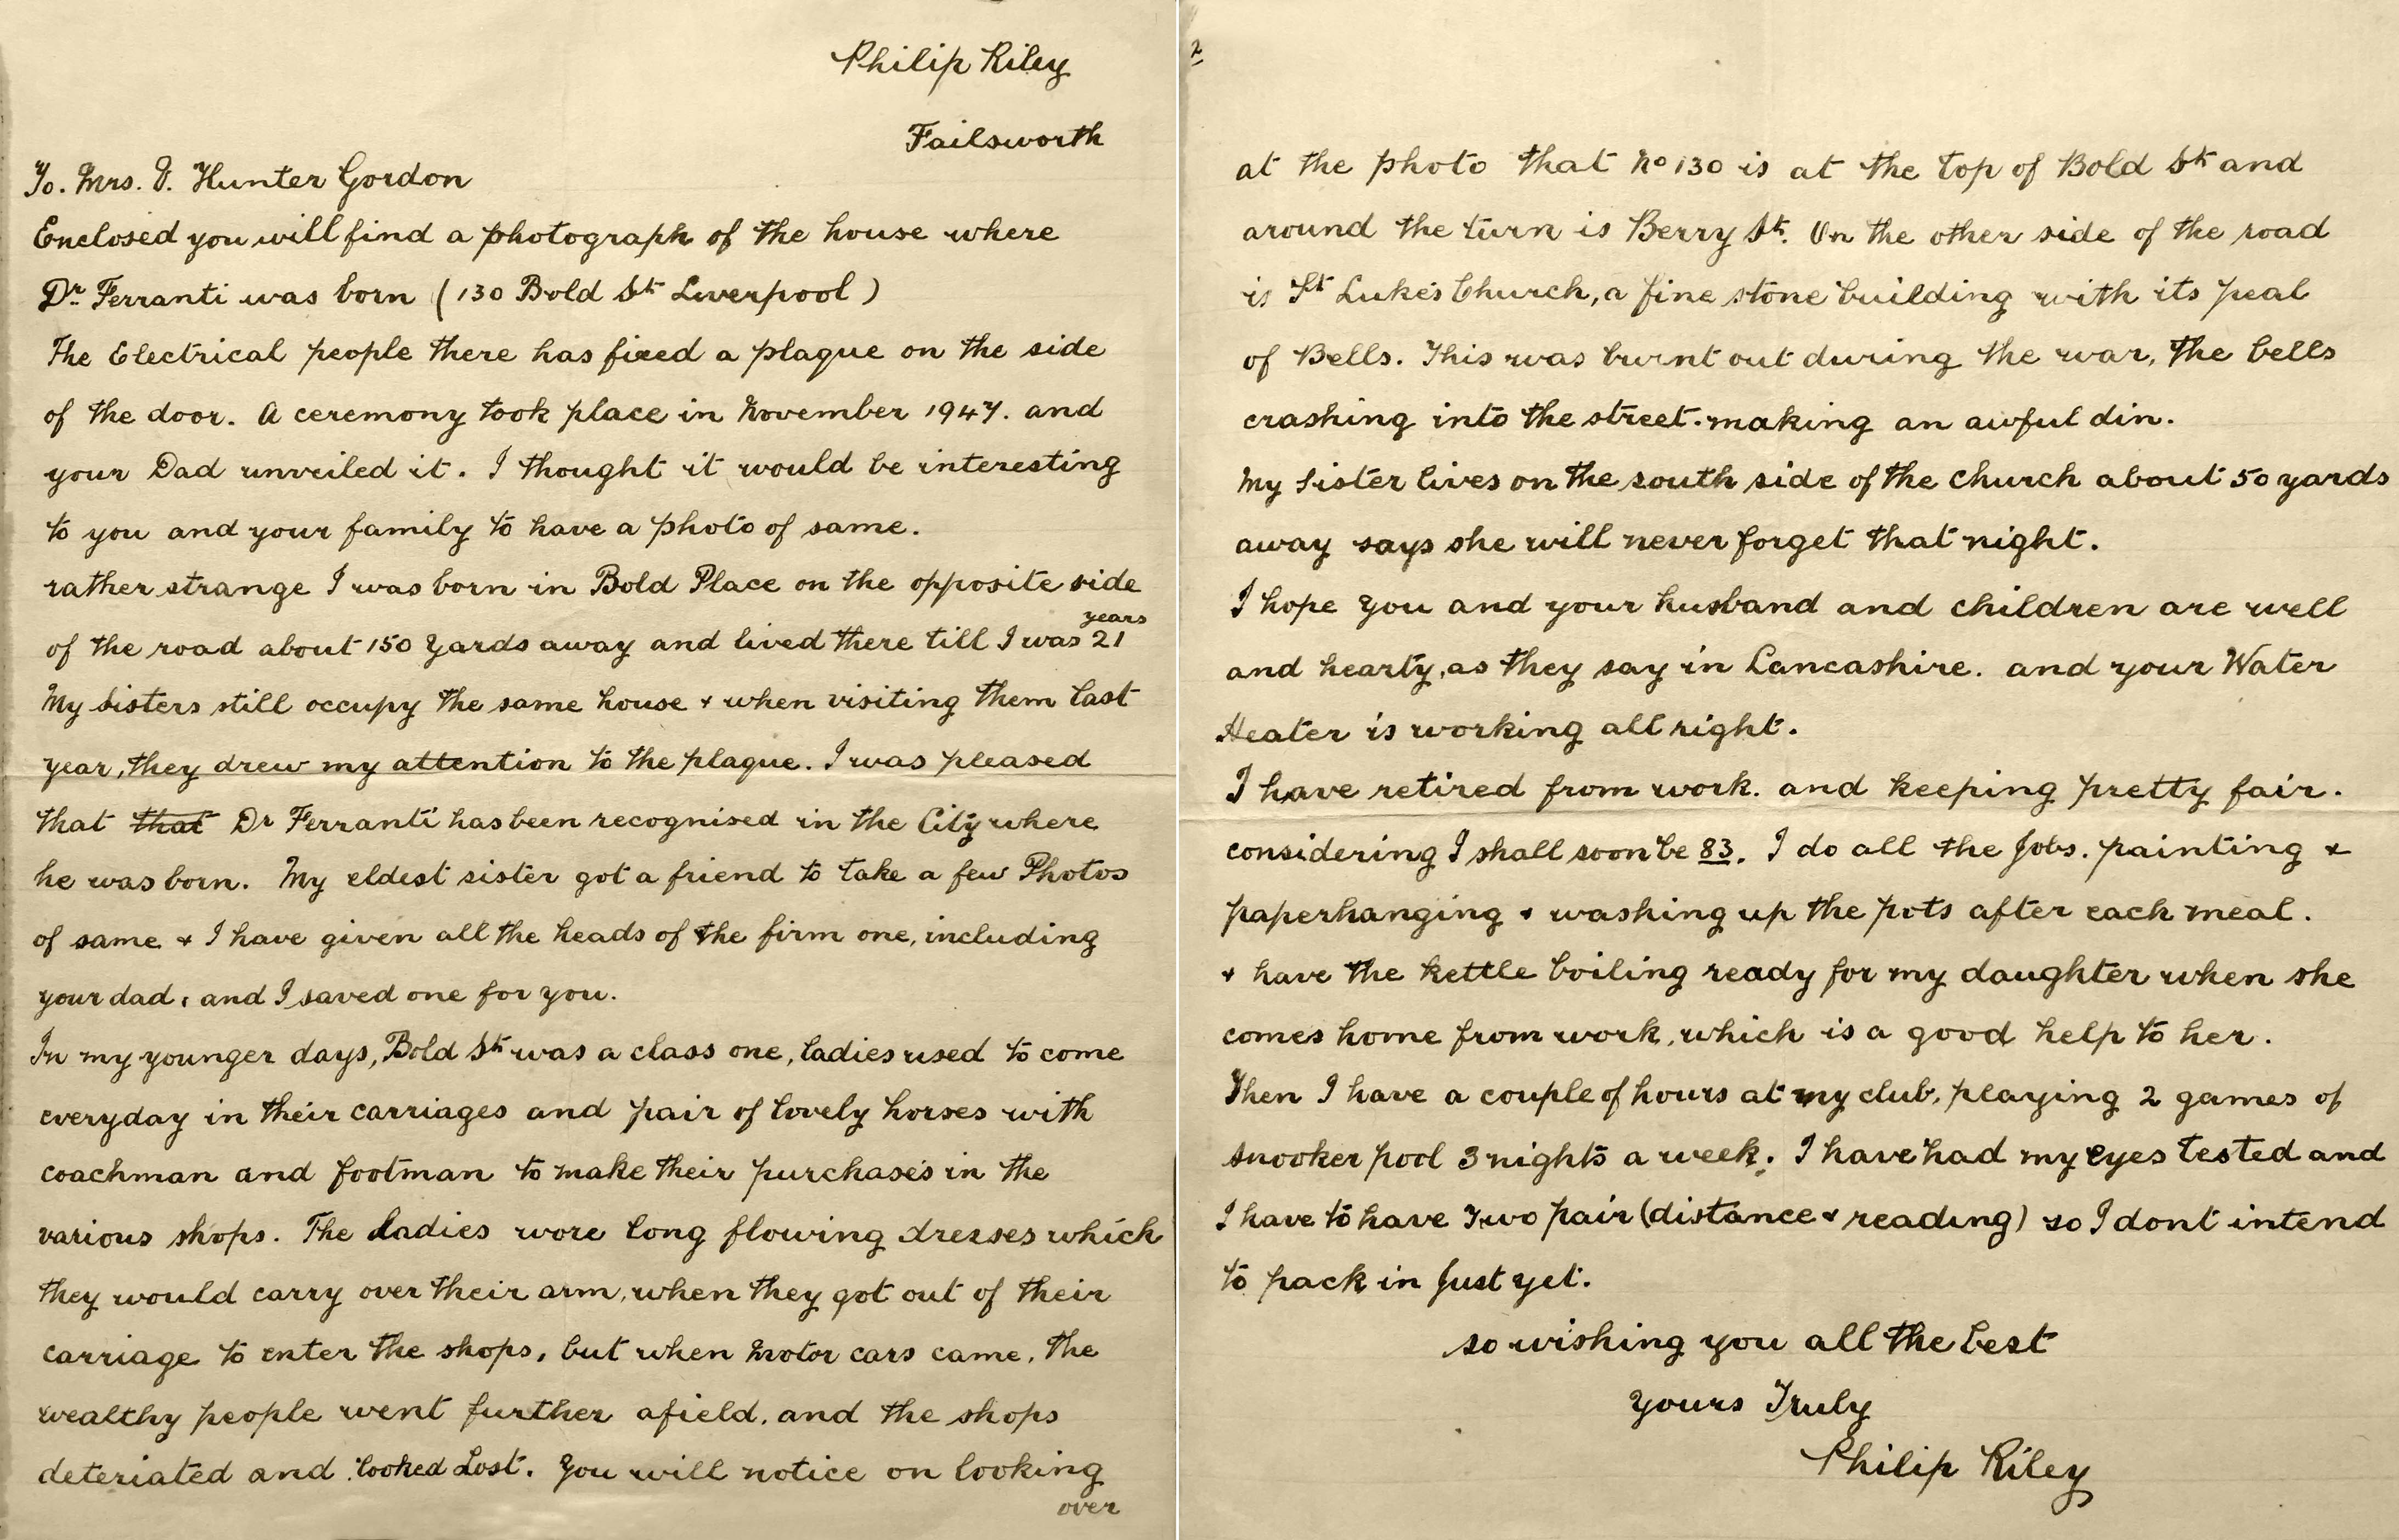 Philip Riley
Failsworth
To. Mrs. V. Hunter Gordon
Enclosed you will find a photograph of the house where
Dr. Ferranti was born (130 Bold St. Liverpool)
The Electrical people there has fixed a plaque on the side
of the door. A ceremony took place in November 1947. and
your Dad unveiled it. I thought it would be interesting
to you and your family to have a photo of same.
rather strange I was born in Bold Place on the opposite side
years
of the road about 150 yards away and lived there till I was 21
My Sisters still occupy the same house & when visiting them last
year, they drew my attention to the plaque. I was pleased
that that Dr Ferranti has been recognised in the City where
he was born. My eldest sister got a friend to take a few Photos
of same & I have given all the heads of the firm one, including
your dad, and I saved one for you.
In my younger days, Bold St. was a class one, ladies used to come
everyday in their carriages and pair of lovely horses with
coachman and footman to make their purchases in the
various shops. The Ladies wore long flowing dresses which
they would carry over their arm, when they got out of their
carriage to enter the shops, but when motor cars came, the
wealthy people went further afield, and the shops
deteriated and looked Lost. You will notice on looking
over
2
at the photo that No 130 is at the top of Bold St. and
around the turn is Berry St. On the other side of the road
is St Luke's Church, a fine stone building with its peal
of Bells. This was burnt out during the war, the bells
crashing into the street. making an awful din.
My Sister lives on the south side of the church about 50 yards
away says she will never forget that night.
I hope you and your husband and children are well
and hearty, as they say in Lancashire. and your Water
Heater is working all right.
I have retired from work. and keeping pretty fair.
considering I shall soon be 83. I do all the Jobs. painting &
paperhanging & washing up the pots after each meal.
& have the kettle boiling ready for my daughter when she
comes home from work, which is a good help to her.
Then I have a couple of hours at my club, playing 2 games of
snooker pool 3 nights a week. I have had my eyes tested and
I have to have Two pair (distance & reading) so I dont intend
to pack in Just yet.
so wishing you all the best
yours Truly
Philip Riley